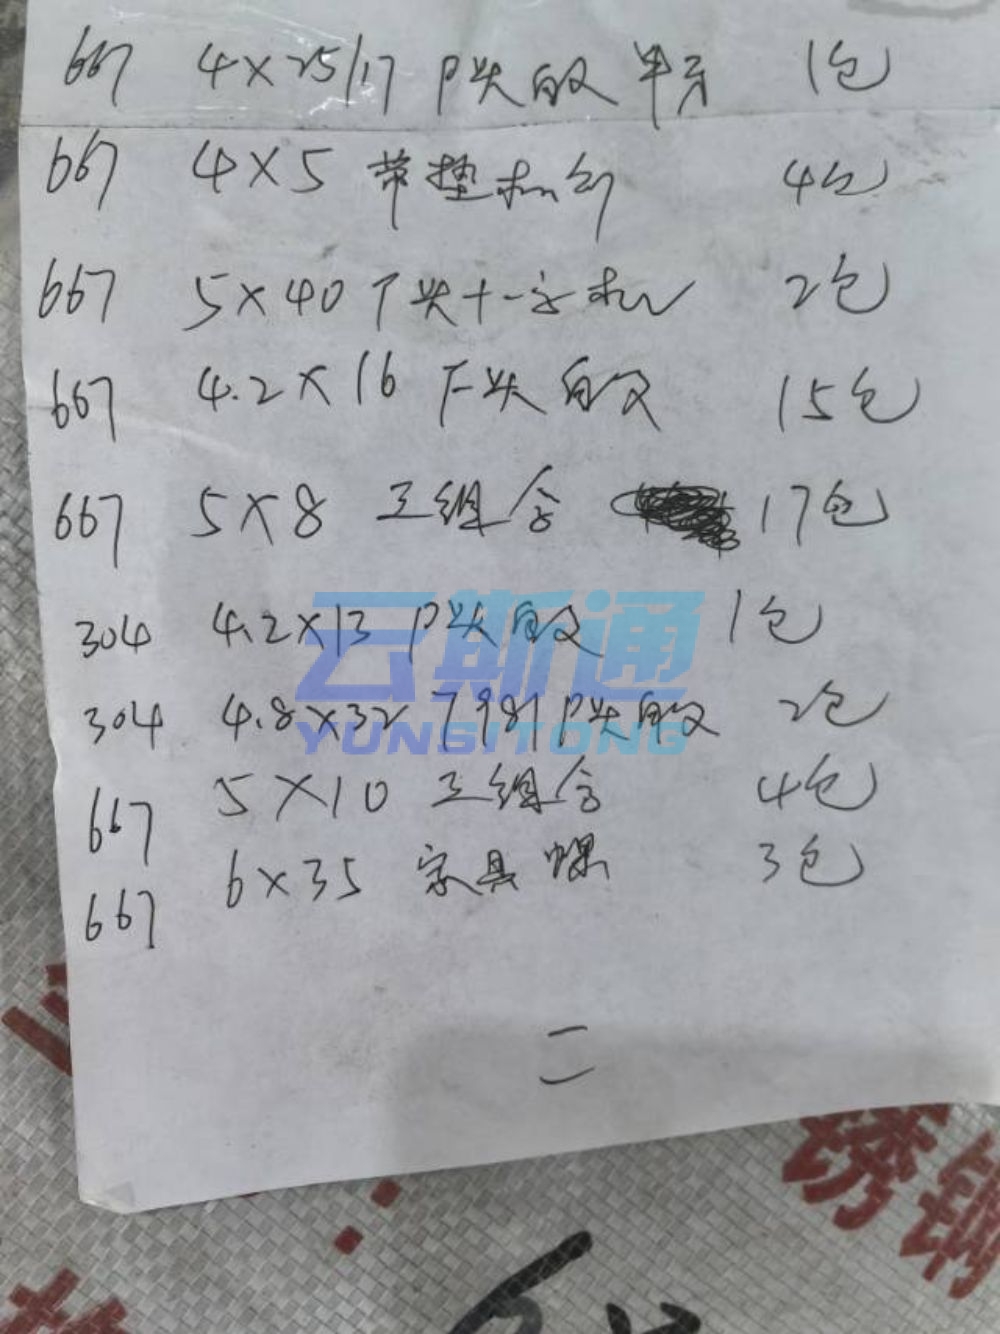 667 4×25/17 P头自攻 单牙 1包
667 4×5 带垫机介 4包
667 5×40 T头十一字机 2包
667 4.2×16 F头自攻 15包
667 5×8 三组合 17包
304 4.2×13 P头自攻 1包
云斯通
304 4.8×32 7981P头自攻 2包
YUNSITONG
667 5×10 三组合 4包
667 6×35 家具螺 3包
二
锈钢